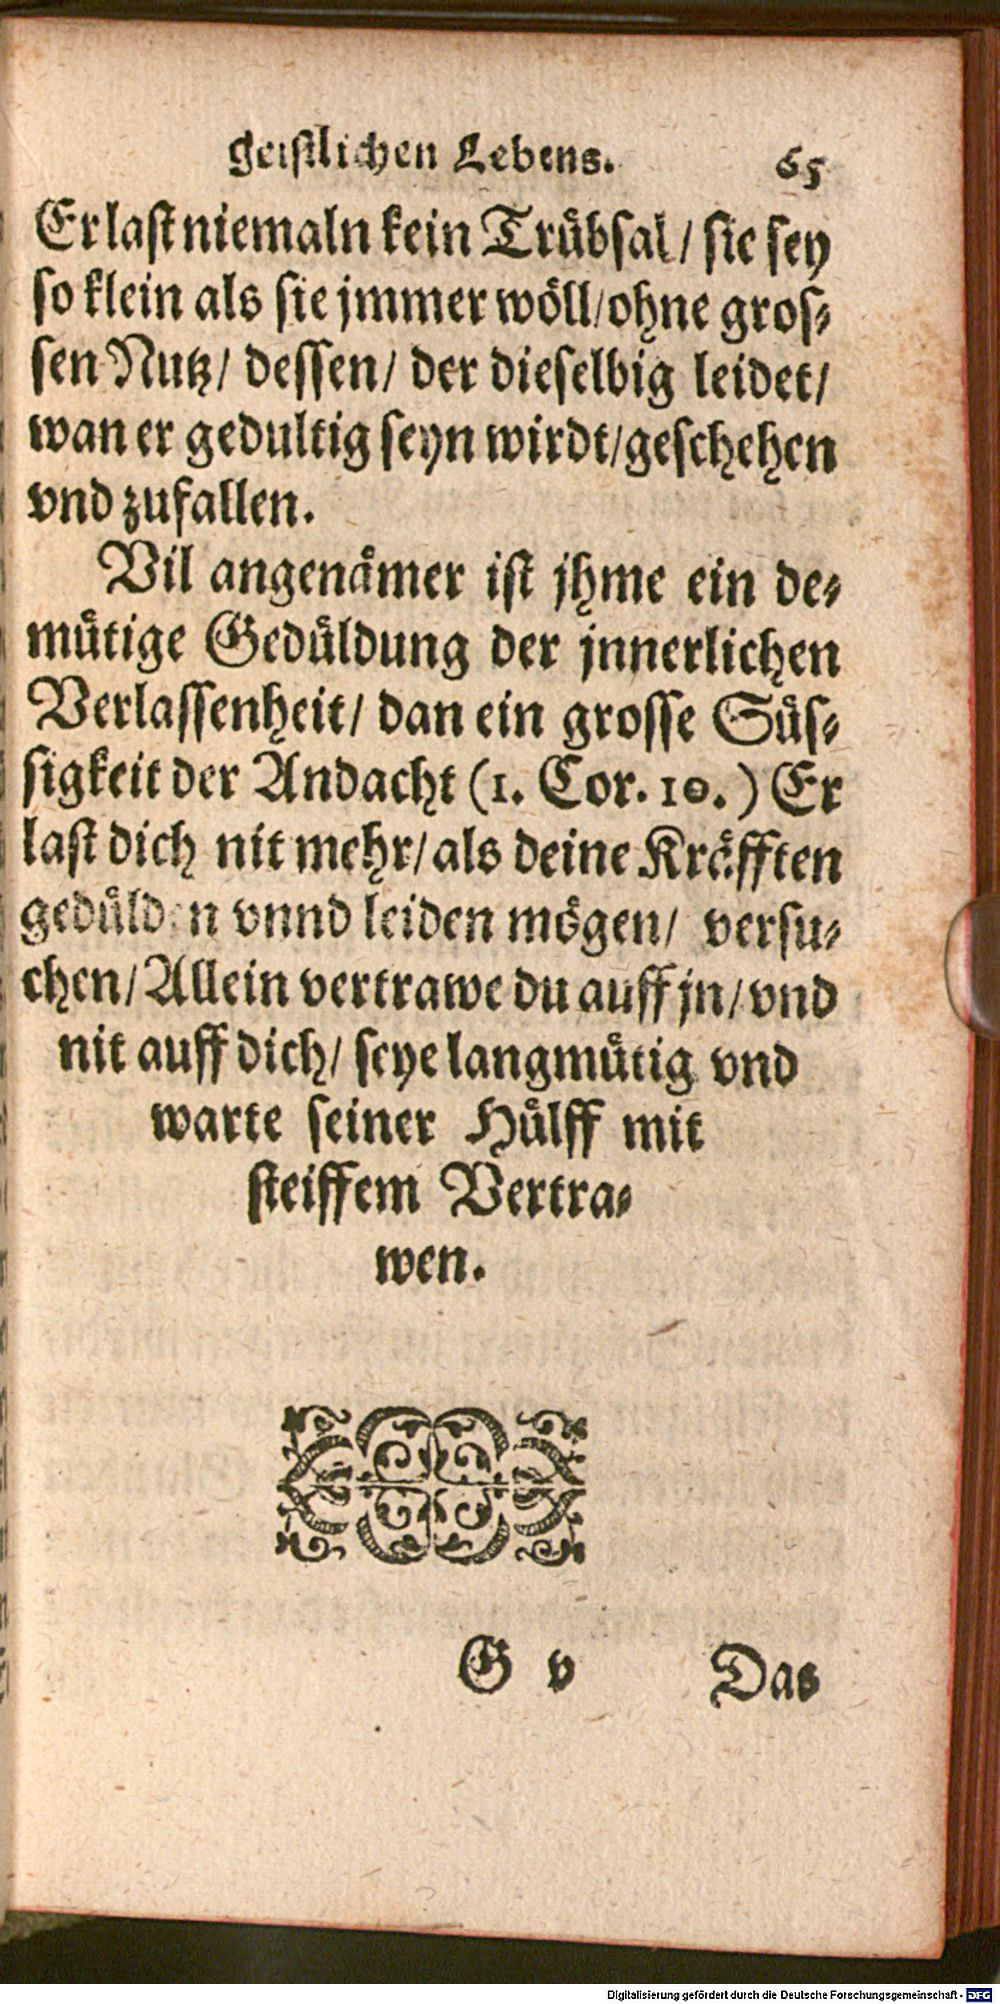 geistlichen Lebens. 65
Er last niemaln kein Trübsal / sie sey
so klein als sie jmmer wöll / ohne gros-
sen Nutz / dessen / der dieselbig leidet /
wan er gedultig seyn wirdt / geschehen
vnd zufallen.
Vil angenämer ist jhme ein de-
mütige Gedüldung der jnnerlichen
Verlassenheit / dan ein grosse Süs-
sigkeit der Andacht (1. Cor. 10.) Er
last dich nit mehr / als deine Kräfften
gedülden vnnd leiden mögen / versu-
chen / Allein vertrawe du auff jn / vnd
nit auff dich / seye langmütig vnd
warte seiner Hülff mit
steiffem Vertra-
wen.
G v Das
Digitalisierung gefördert durch die Deutsche Forschungsgemeinschaft - DFG